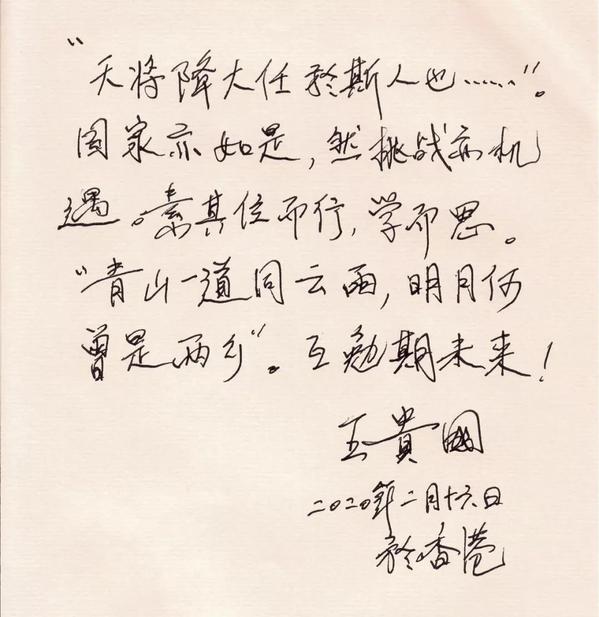 “天将降大任於斯人也……”。
国家亦如是，然挑战亦机
遇。素其位而行，学而思。
“青山一道同云雨，明月何
曾是两乡”。互勉期未来！
王貴國
二〇二〇年二月十六日
於香港